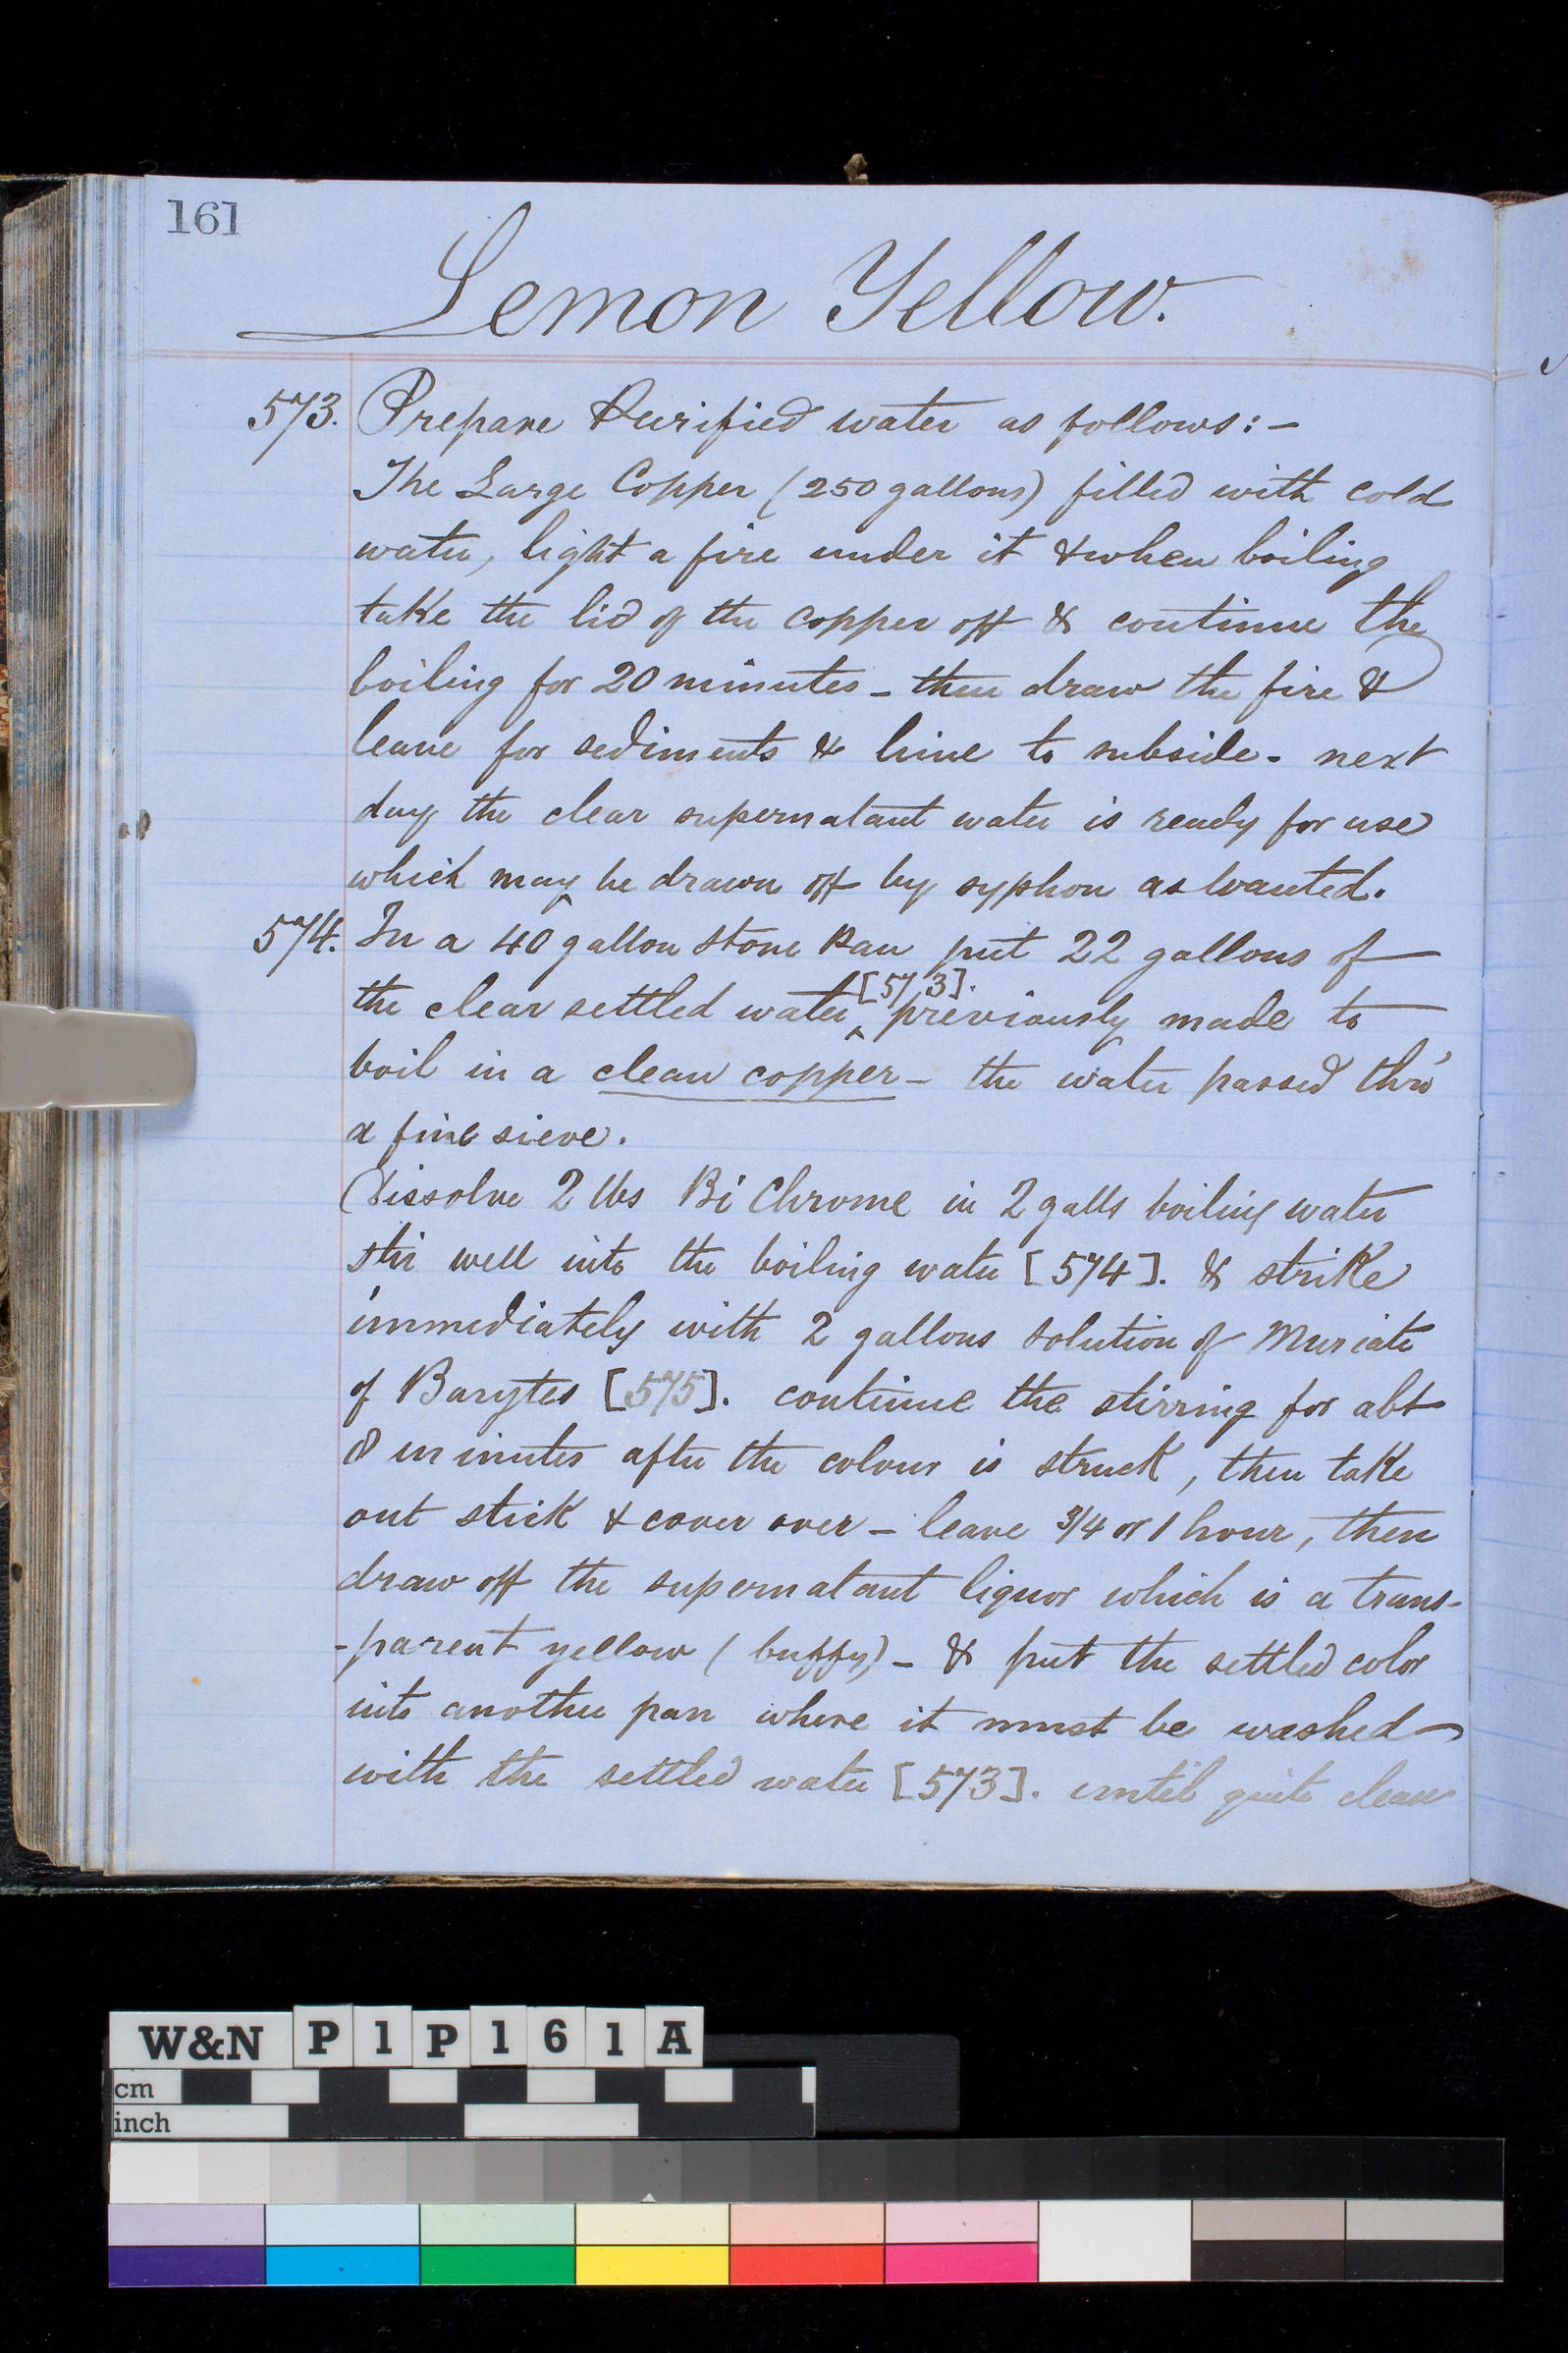 161
Lemon Yellow.
573. Prepare Purified water as follows:-
The Large Copper (250 gallons) filled with cold
water, light a fire under it & when boiling
take the lid of the copper off & continue the
boiling for 20 minutes - then draw the fire &
leave for sediments & lime to subside - next
day the clear supernatant water is ready for use
which may be drawn off by syphon as wanted.
574. In a 40 gallon Stone Pan put 22 gallons of
[573].
the clear settled water ‸ previously made to
boil in a clean copper - the water passed thro'
a fine sieve.
Dissolve 2 lbs Bi Chrome in 2 galls boiling water
stir well into the boiling water [574]. & strike
immediately with 2 gallons solution of Muriate
of Barytes [575]. continue the stirring for abt
8 minutes after the colour is struck, then take
out stick & cover over - leave 3/4 or 1 hour, then
draw off the supernatant liquor which is a trans-
-parent yellow (buffy) - & put the settled color
into another pan where it must be washed
with the settled water [573]. until quite clean
W&N P1P161A
cm
inch